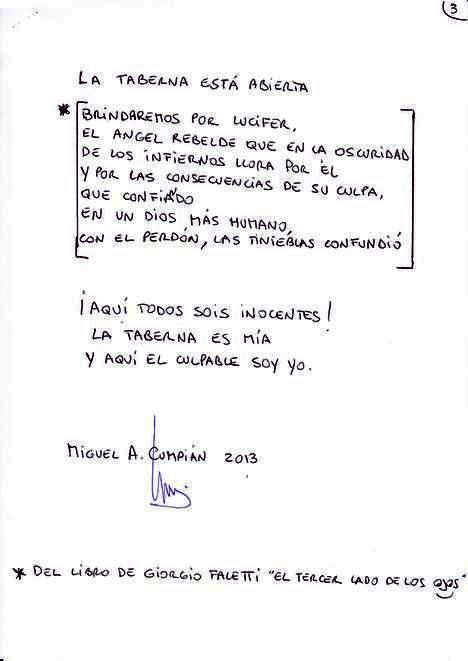 3
LA TABERNA ESTÁ ABIERTA
* BRINDAREMOS POR LUCIFER,
EL ANGEL REBELDE QUE EN LA OSCURIDAD
DE LOS INFIERNOS LLORA POR ÉL
Y POR LAS CONSECUENCIAS DE SU CULPA,
QUE CONFIADO
EN UN DIOS MÁS HUMANO,
CON EL PERDÓN, LAS TINIEBLAS CONFUNDIÓ
¡AQUÍ TODOS SOIS INOCENTES!
LA TABERNA ES MÍA
Y AQUÍ EL CULPABLE SOY YO.
MIGUEL A. CUMPIÁN 2013
* DEL LIBRO DE GIORGIO FALETTI "EL TERCER LADO DE LOS OJOS"